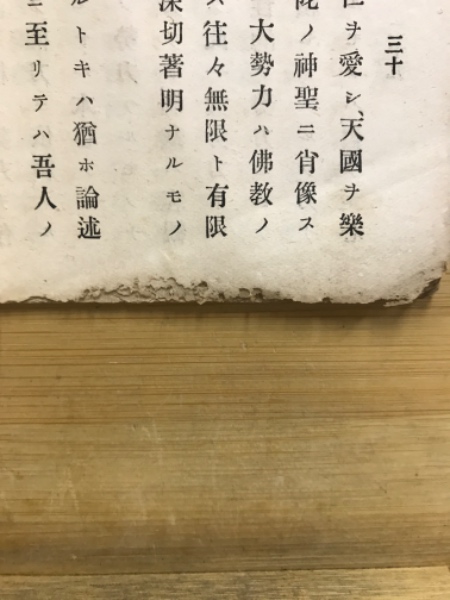 三十
ヲ愛シ、天國ヲ樂
ノ神聖ニ肖像ス
大勢力ハ佛教ノ
往々無限ト有限
深切著明ナルモノ
ルトキハ猶ホ論述
ニ至リテハ吾人ノ